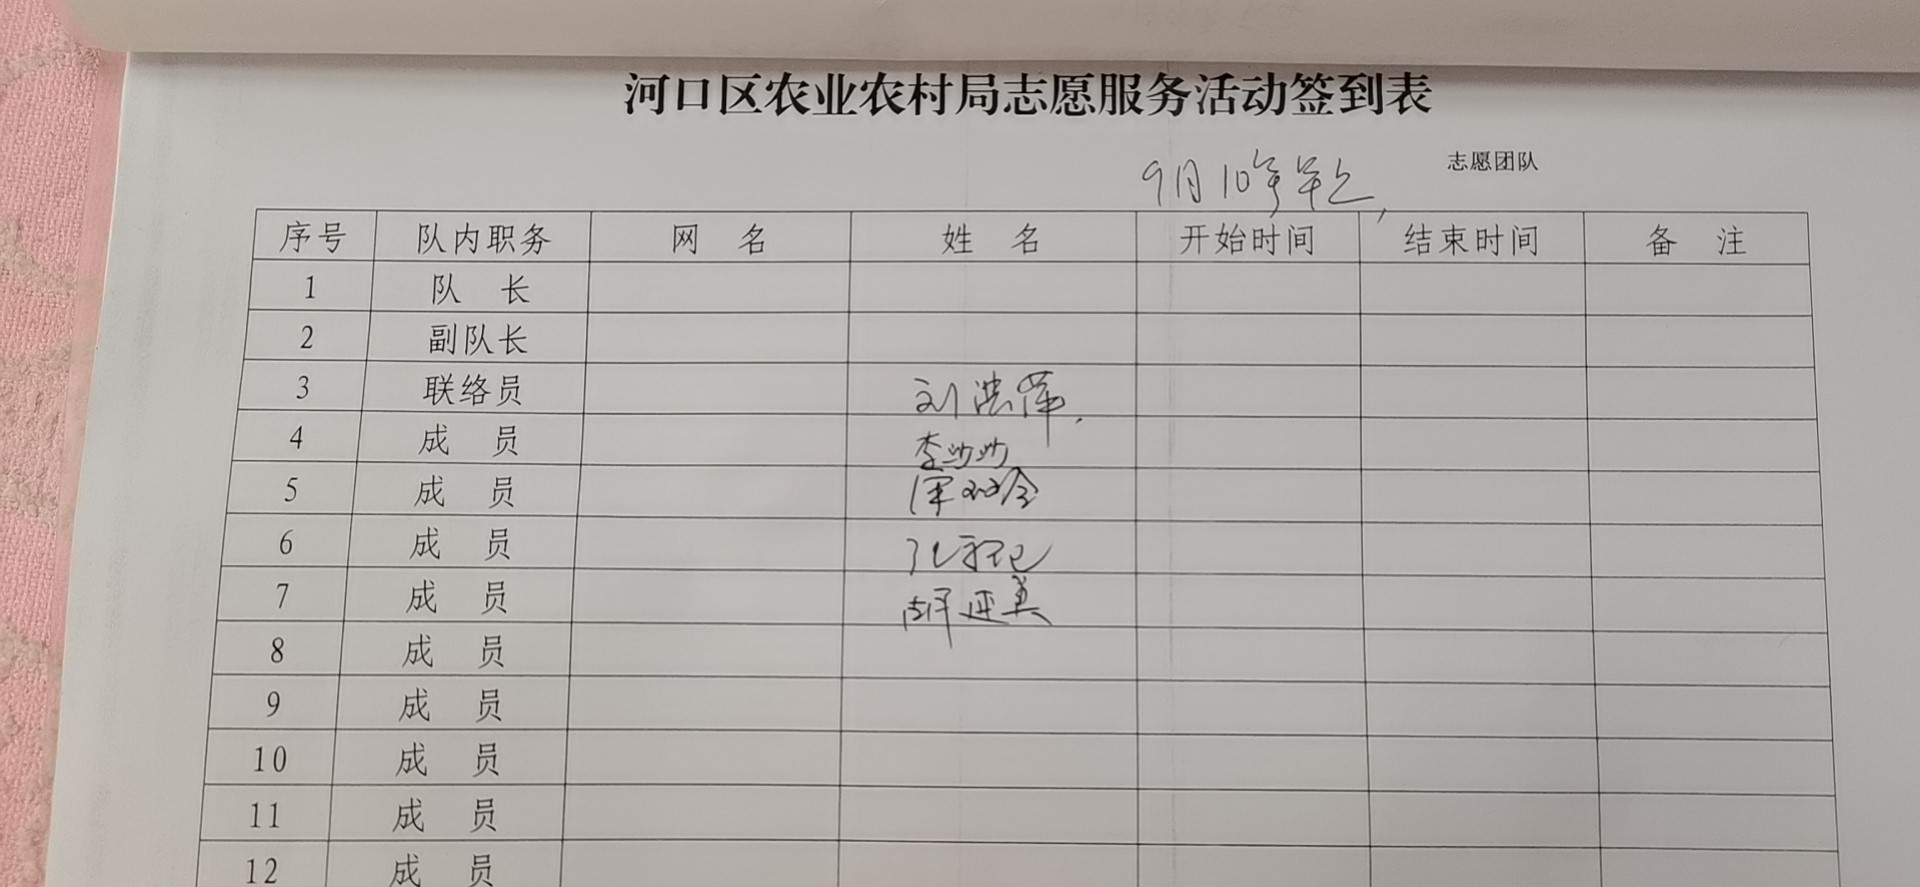 河口区农业农村局志愿服务活动签到表
9月10
志愿团队
序号 队内职务 网 名 姓 名 开始时间 结束时间 备 注
1 队 长
2 副队长
3 联络员 刘洪萍
4 成 员 李沙沙
5 成 员
6 成 员
7 成 员
8 成 员
9 成 员
10 成 员
11 成 员
12 成 员